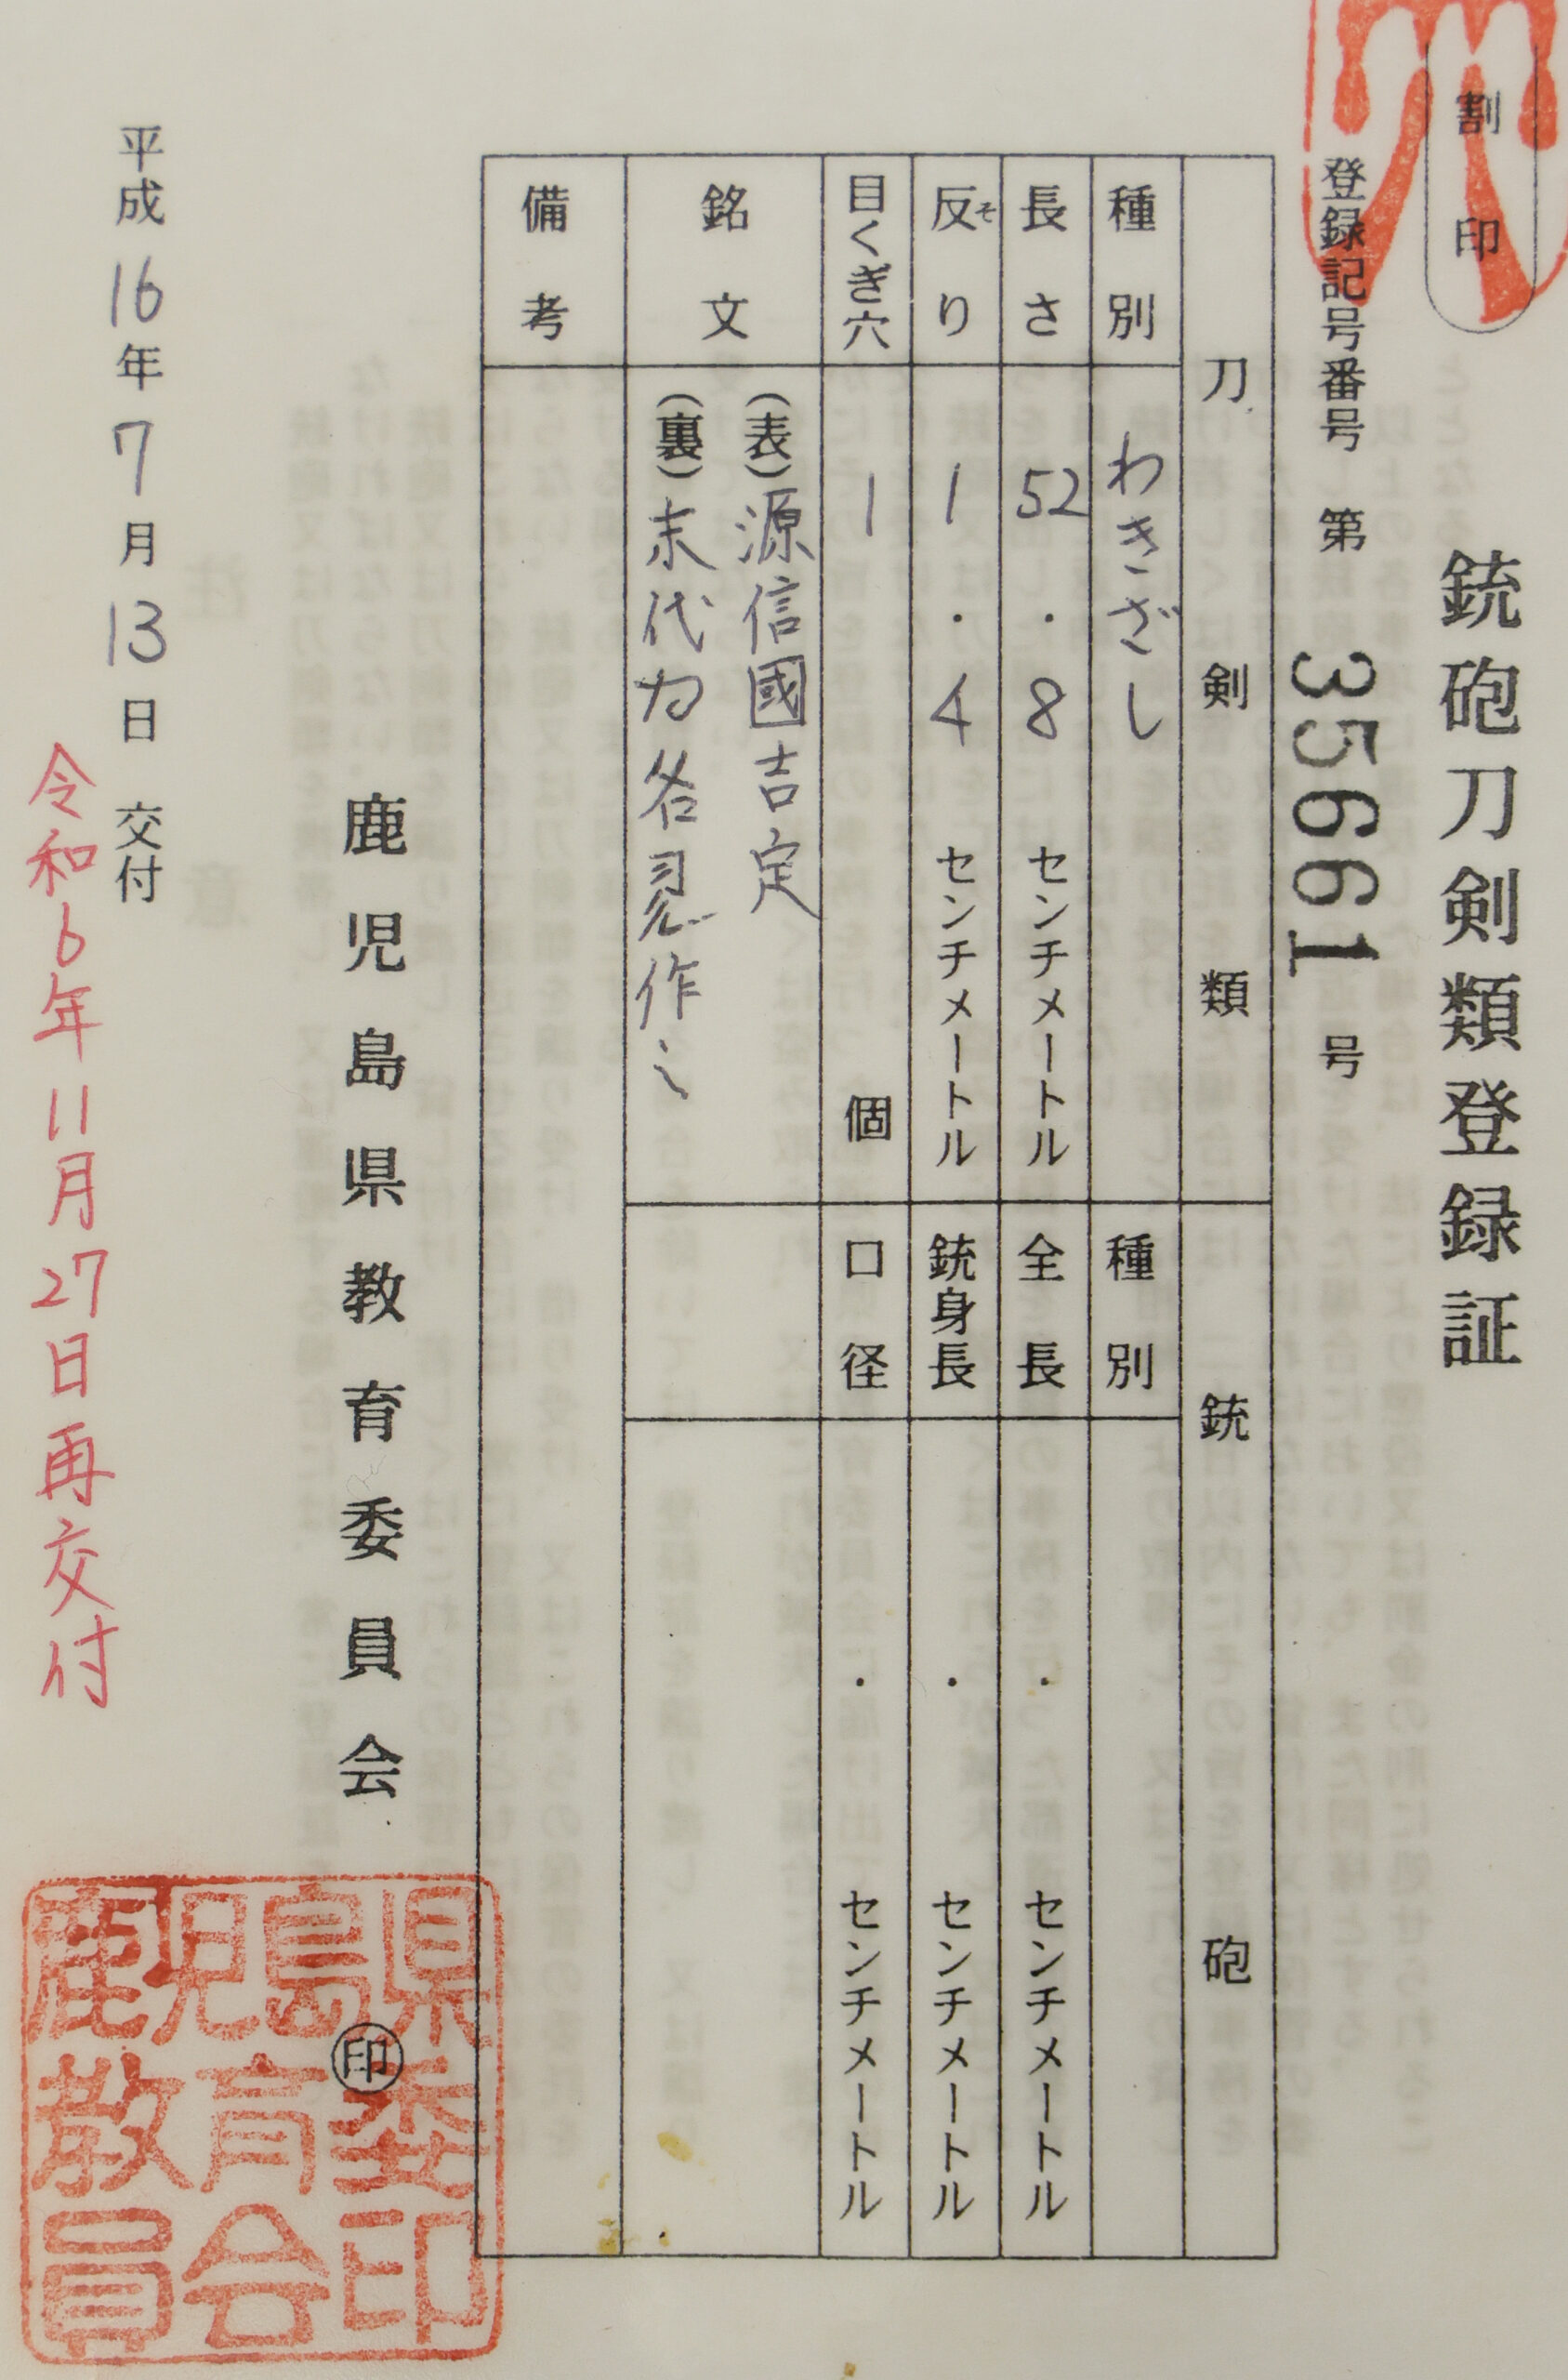 銃砲刀剣類登録証
割印
登録記号番号 第 35661 号
刀剣類
種別 わきざし
長さ 52.8 センチメートル
反り 1.4 センチメートル
そ
目くぎ穴 1 個
銘文
(表)源信國吉定
(裏)末代力
作之
備考
銃砲
種別
全長 . センチメートル
銃身長 . センチメートル
口径 . センチメートル
鹿児島県教育委員会 印
平成16年7月13日 交付
令和6年11月27日再交付
鹿児島県
教育委
員会印